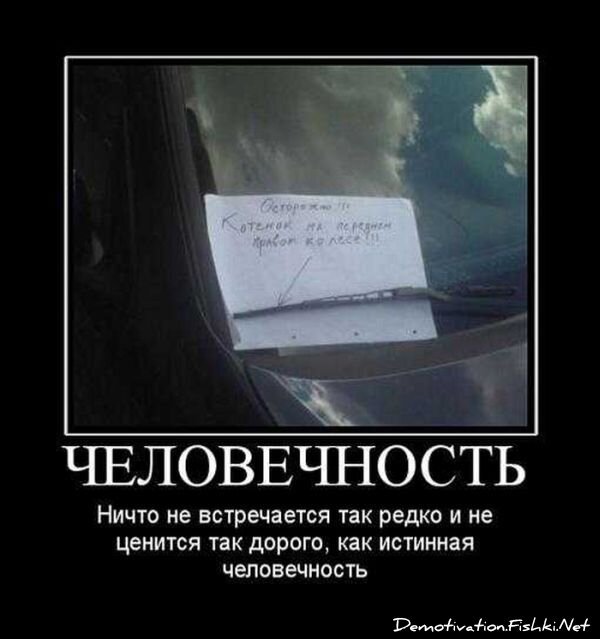 Осторожно !!!
Котенок на переднем
правом колесе!!!
ЧЕЛОВЕЧНОСТЬ
Ничто не встречается так редко и не
ценится так дорого, как истинная
человечность
Demotivation.Fishki.Net